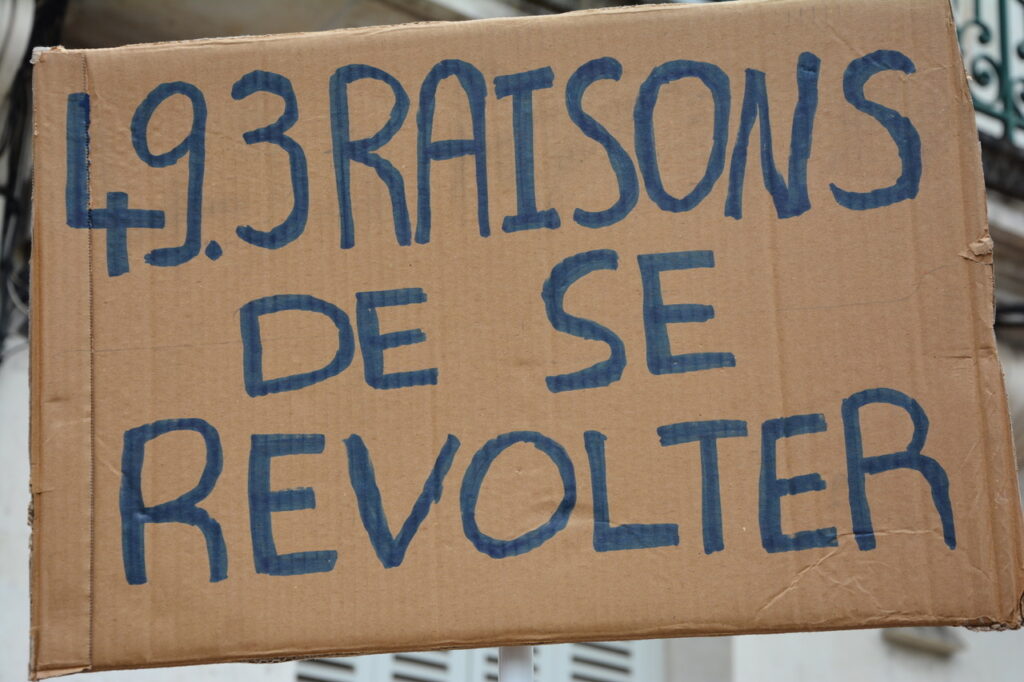 49.3 RAISONS
DE SE
REVOLTER